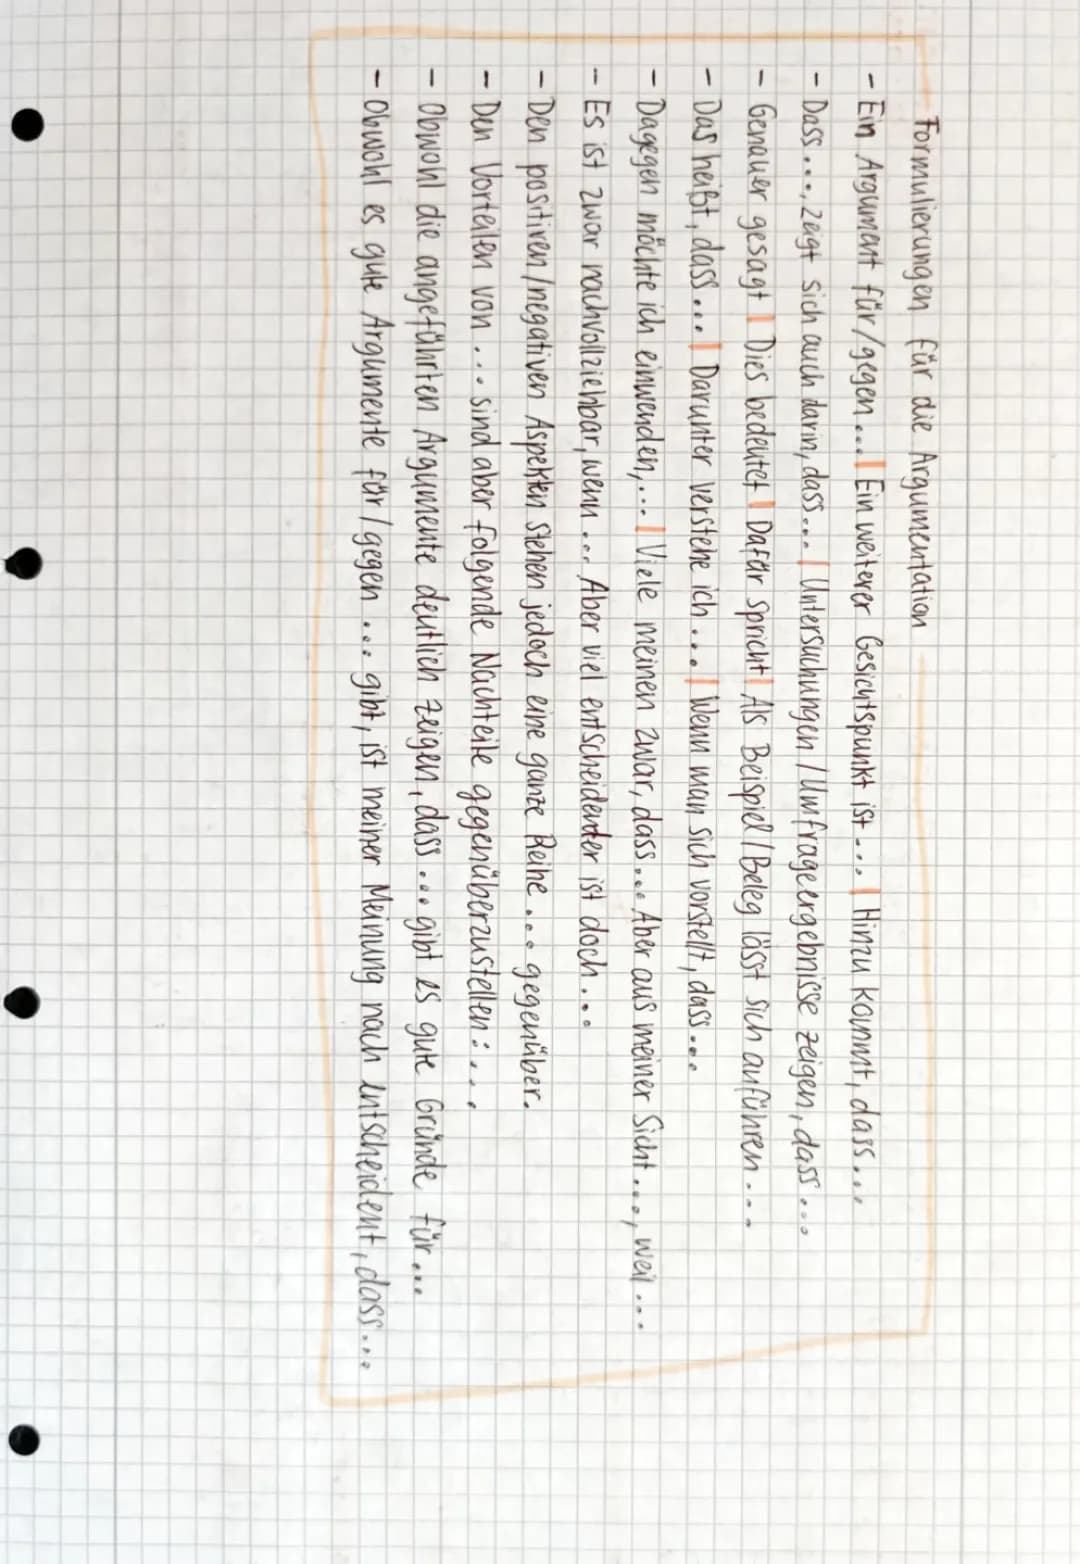 Formulierungen für die Argumentation
- Ein Argument für/gegen... | Ein weiterer Gesichtspunkt ist... | Hinzu kommt, dass...
- Dass..., zeigt sich auch darin, dass... | Untersuchungen / Umfrageergebnisse zeigen, dass...
- Genauer gesagt | Dies bedeutet | Dafür spricht | Als Beispiel / Beleg lässt sich anführen...
- Das heißt, dass... | Darunter verstehe ich... | Wenn man sich vorstellt, dass...
- Dagegen möchte ich einwenden,... | Viele meinen zwar, dass... Aber aus meiner Sicht..., weil...
- Es ist zwar nachvollziehbar, wenn... Aber viel entscheidender ist doch...
- Den positiven/negativen Aspekten stehen jedoch eine ganze Reihe... gegenüber.
- Den Vorteilen von... sind aber folgende Nachteile gegenüberzustellen:...
- Obwohl die angeführten Argumente deutlich zeigen, dass... gibt es gute Gründe für...
- Obwohl es gute Argumente für/gegen... gibt, ist meiner Meinung nach entscheident, dass...